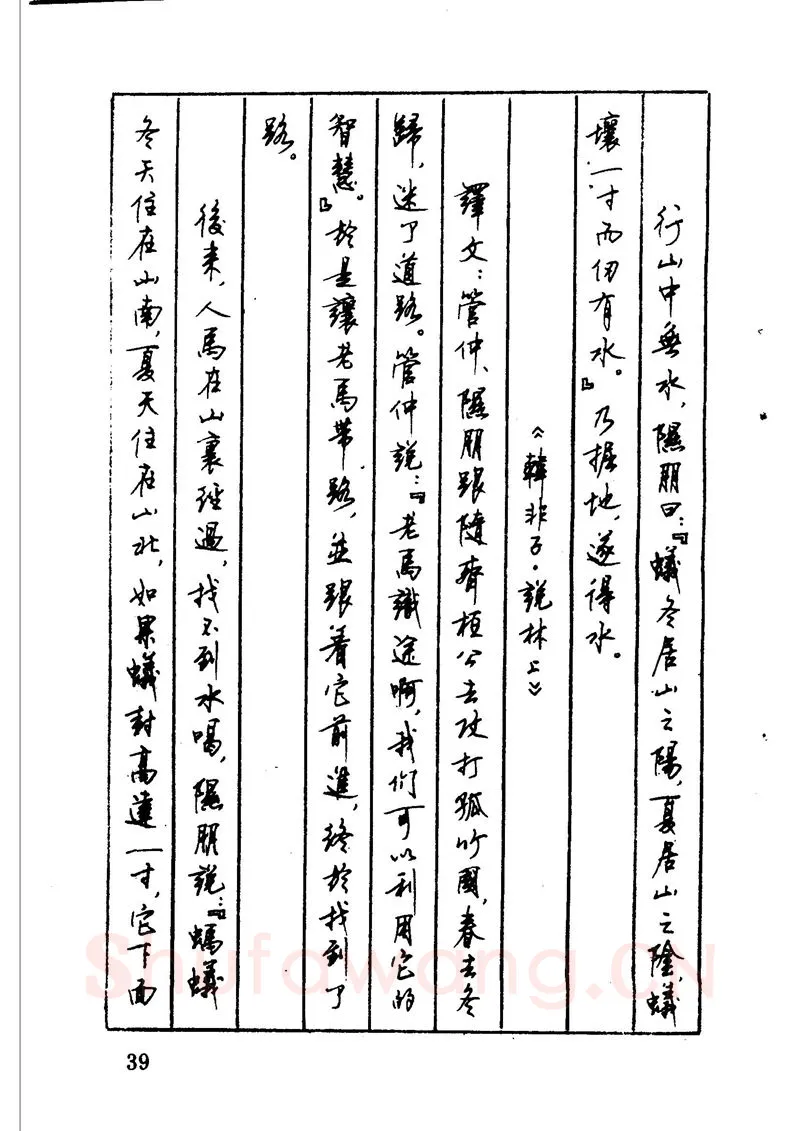 行山中無水，隰朋曰：『蟻冬居山之陽，夏居山之陰，蟻
壤一寸而仞有水。』乃掘地，遂得水。
《韓非子·說林上》
譯文：管仲、隰朋跟隨齊桓公去攻打孤竹國，春去冬
歸，迷了道路。管仲說：『老馬識途啊，我們可以利用它的
智慧。』於是讓老馬帶路，並跟着它前進，終於找到了
路。
後來，人馬在山裏經過，找不到水喝，隰朋說：『螞蟻
冬天住在山南，夏天住在山北，如果蟻封高達一寸，它下面
39
Shufawang.CN